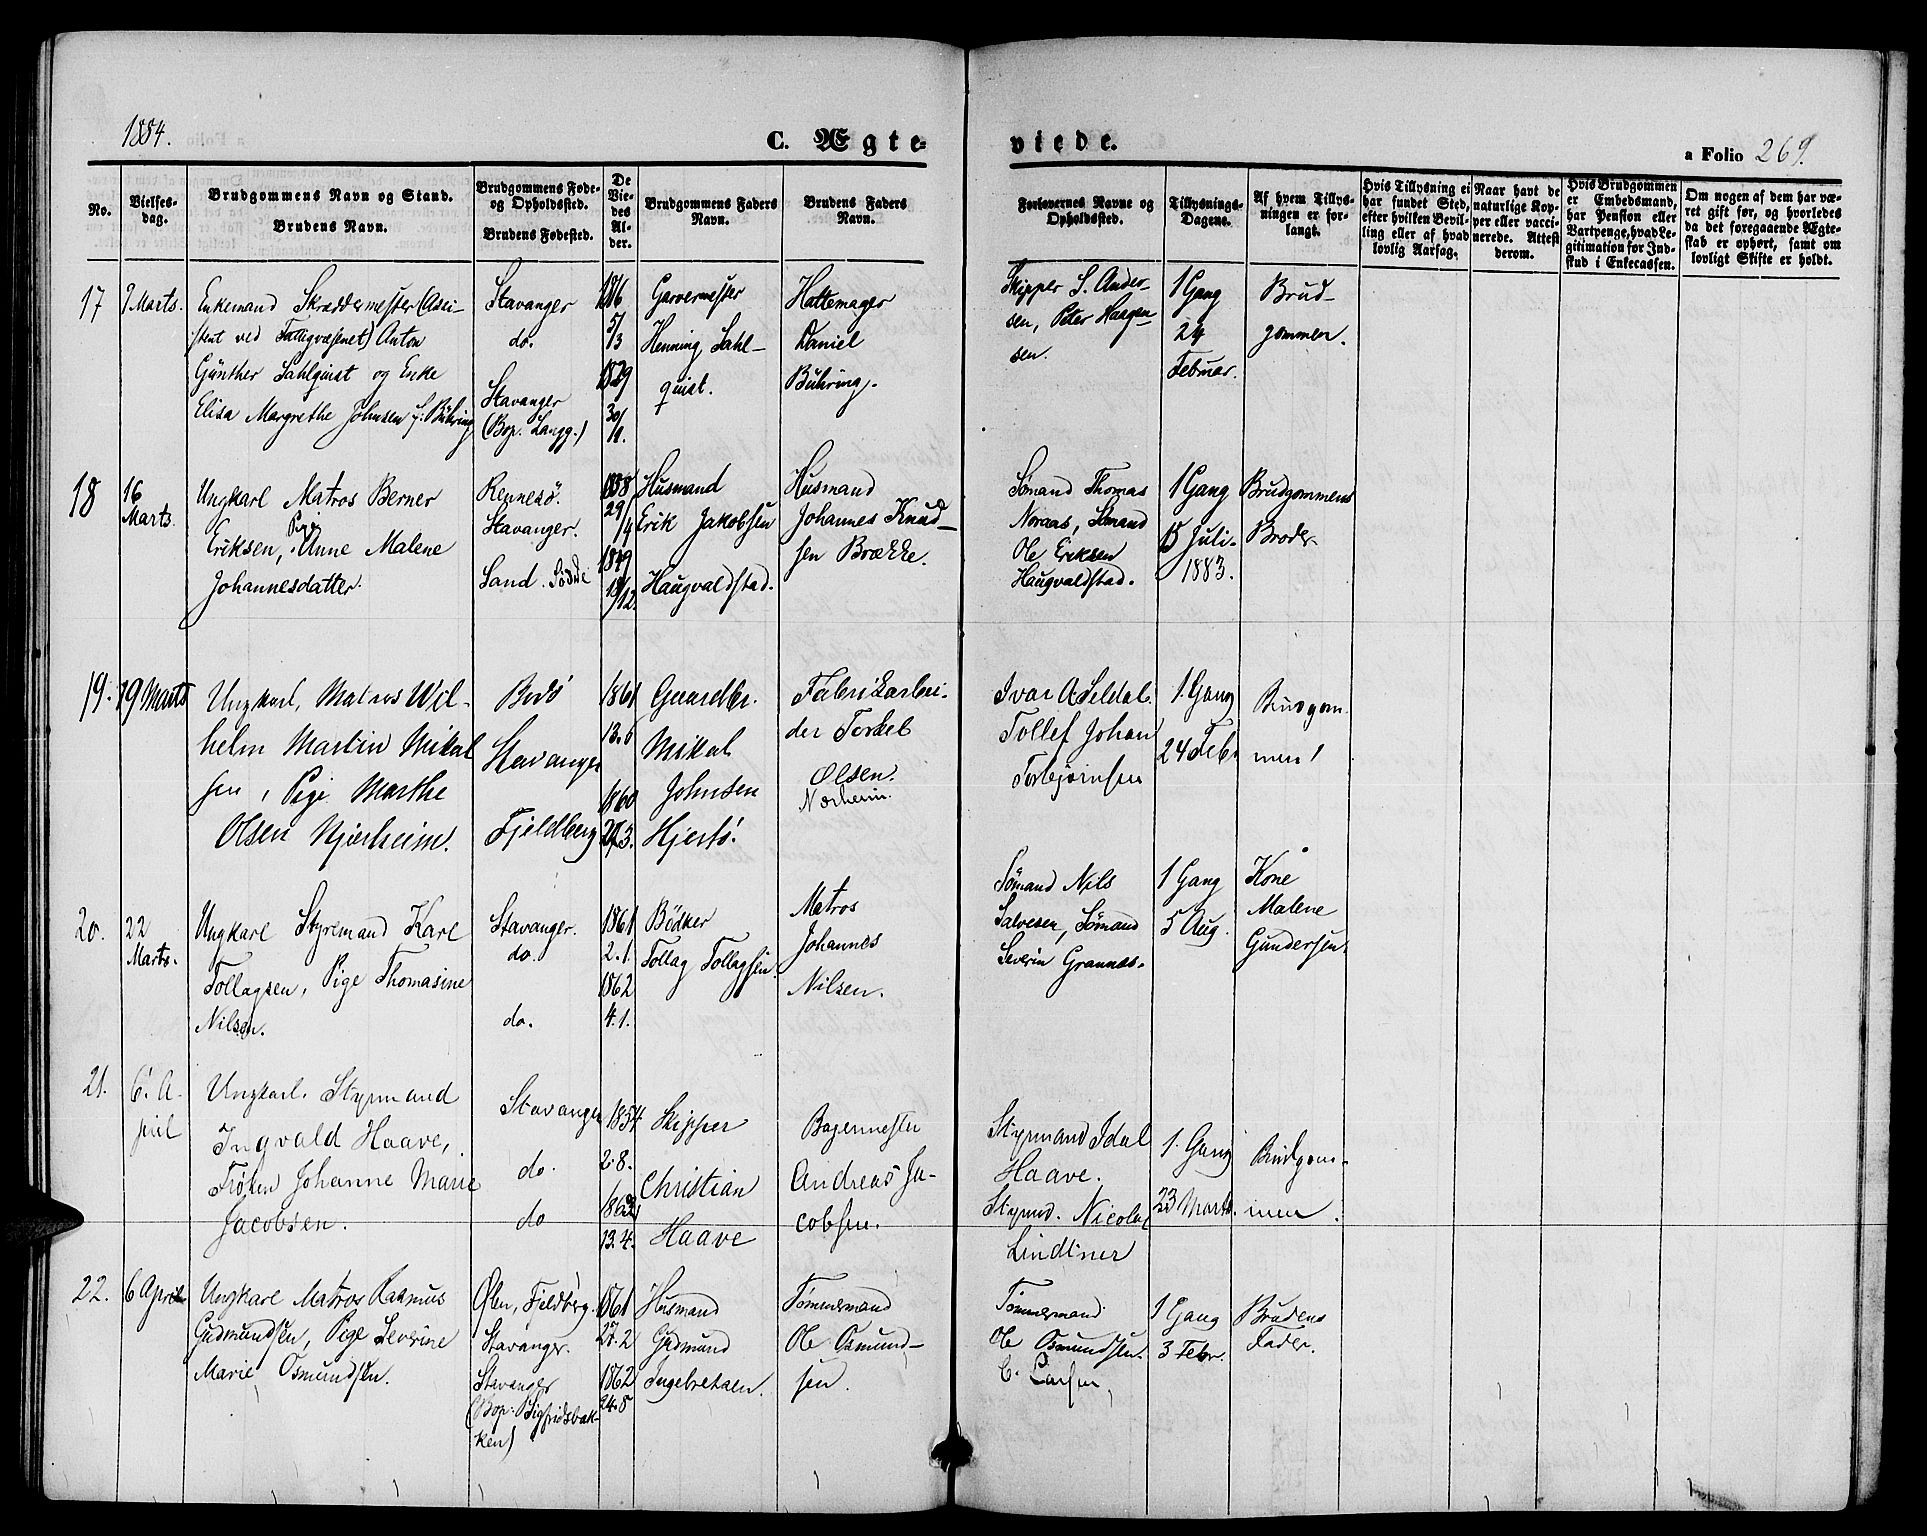 1884.
C. Ægte-
viede.
a Folio 269.
No.
Vielses-
dag.
Brudgommens Navn og Stand.
Brudens Navn.
Brudgommens Føde-
og Opholdssted.
Brudens Fødested.
De
Vie-
des
Al-
der.
Brudgommens Faders
Navn.
Brudens Faders
Navn.
Forlovernes Navne og
Opholdssted.
Tillysnings-
Dagene.
Af hvem Tillys-
ningen er for-
langt.
Hvis Tillysning ei
har fundet Sted,
efter hvilken Bevil-
ling eller af hvad
lovlig Aarsag.
Naar havt de
naturlige Kop-
per eller vacci-
nerede. Attest
derom.
Hvis Brudgommen
er Embedsmand,
har Pension eller
Vartpenge, hvad Le-
gitimation for Ind-
skud i Enkecassen.
Om nogen af dem har væ-
ret gift før, og hvorledes
da det foregaaende Ægte-
skab er ophørt, samt om
lovligt Skifte er holdt.
17
9 Marts.
Enkemand Skræddermester (Assi-
stent ved Fattigvæsenet) Anton
Günther Sahlquist og Enke
Elisa Margrethe Johnsen f: Bühring
Stavanger
do.
Stavanger
(Bop. Langg.)
1816
5/3
1829
30/1.
Garvermester
Henning Sahl-
quist.
Hattemager
Daniel
Bühring.
Skipper S. Ander-
sen, Peter Haagen-
sen.
1 Gang
24
Februar.
Brud-
gommen.
18
16
Marts.
Ungkarl Matros Berner
Eriksen, Pige Anne Malene
Johannesdatter.
Rennesö.
Stavanger.
Sand.
1858
29/4
1849
18/12.
Husmand
Erik Jakobsen
Haugvaldstad.
Husmand
Johannes Knud-
sen Brække.
Sømand Thomas
Noraas, Sømand
Ole Eriksen
Haugvaldstad.
1 Gang
15 Juli.
1883.
Brudgommens
Broder
19.
19 Marts
Ungkarl, Matros Wil-
helm Martin Mikal
sen, Pige Marthe
Olsen Njærheim.
Bodö
Stavanger
Fjeldberg
1861
13.6
1860
27.3.
Gaardbr.
Mikal
Johnsen
Hjertö.
Fabrikarbei-
der Torkel
Olsen.
Nærheim.
Ivar A. Seldal.
Tollef Johan
Torbjörnsen
1. Gang
24 Febr
Brudgom
men
20.
22
Marts.
Ungkarl Styrmand Karl
Tollagsen, Pige Thomasine
Nilsen.
Stavanger.
do.
do.
1861
2.1.
1862
4.1.
Bödker
Tollag Tollagsen.
Matros
Johannes
Nilsen.
Sømand Nils
Salvesen, Sømand
Severin Grannes.
1 Gang
5 Aug.
Kone
Malene
Gundersen.
21.
6. A-
pril
Ungkarl. Styrmand
Ingvald Haave,
Frøken Johanne Marie
Jacobsen.
Stavanger
do.
do
1854
2.8.
13.4.
Skipper
Christian
Haave
Bagermester
Andreas Ja-
cobsen.
Styrmand Idal
Haave.
Styrmd. Nicolai
Lindtner
1. Gang
23 Marts.
Brudgom-
men.
22.
6 April
Ungkarl Matros Rasmus
Gudmundsen, Pige Severine
Marie Osmundsen.
Ølen, Fjeldberg.
Stavanger.
Stavanger
(Bop: Sigfridsbak-
ken)
1861
27.2
1862
24.8
Husmand
Gudmund
Ingebretsen.
Tömmermand
Ole Osmund-
sen.
Tømmermand
Ole Osmundsen.
C. Larsen,
1 Gang
3 Febr.
Brudens
Fader.